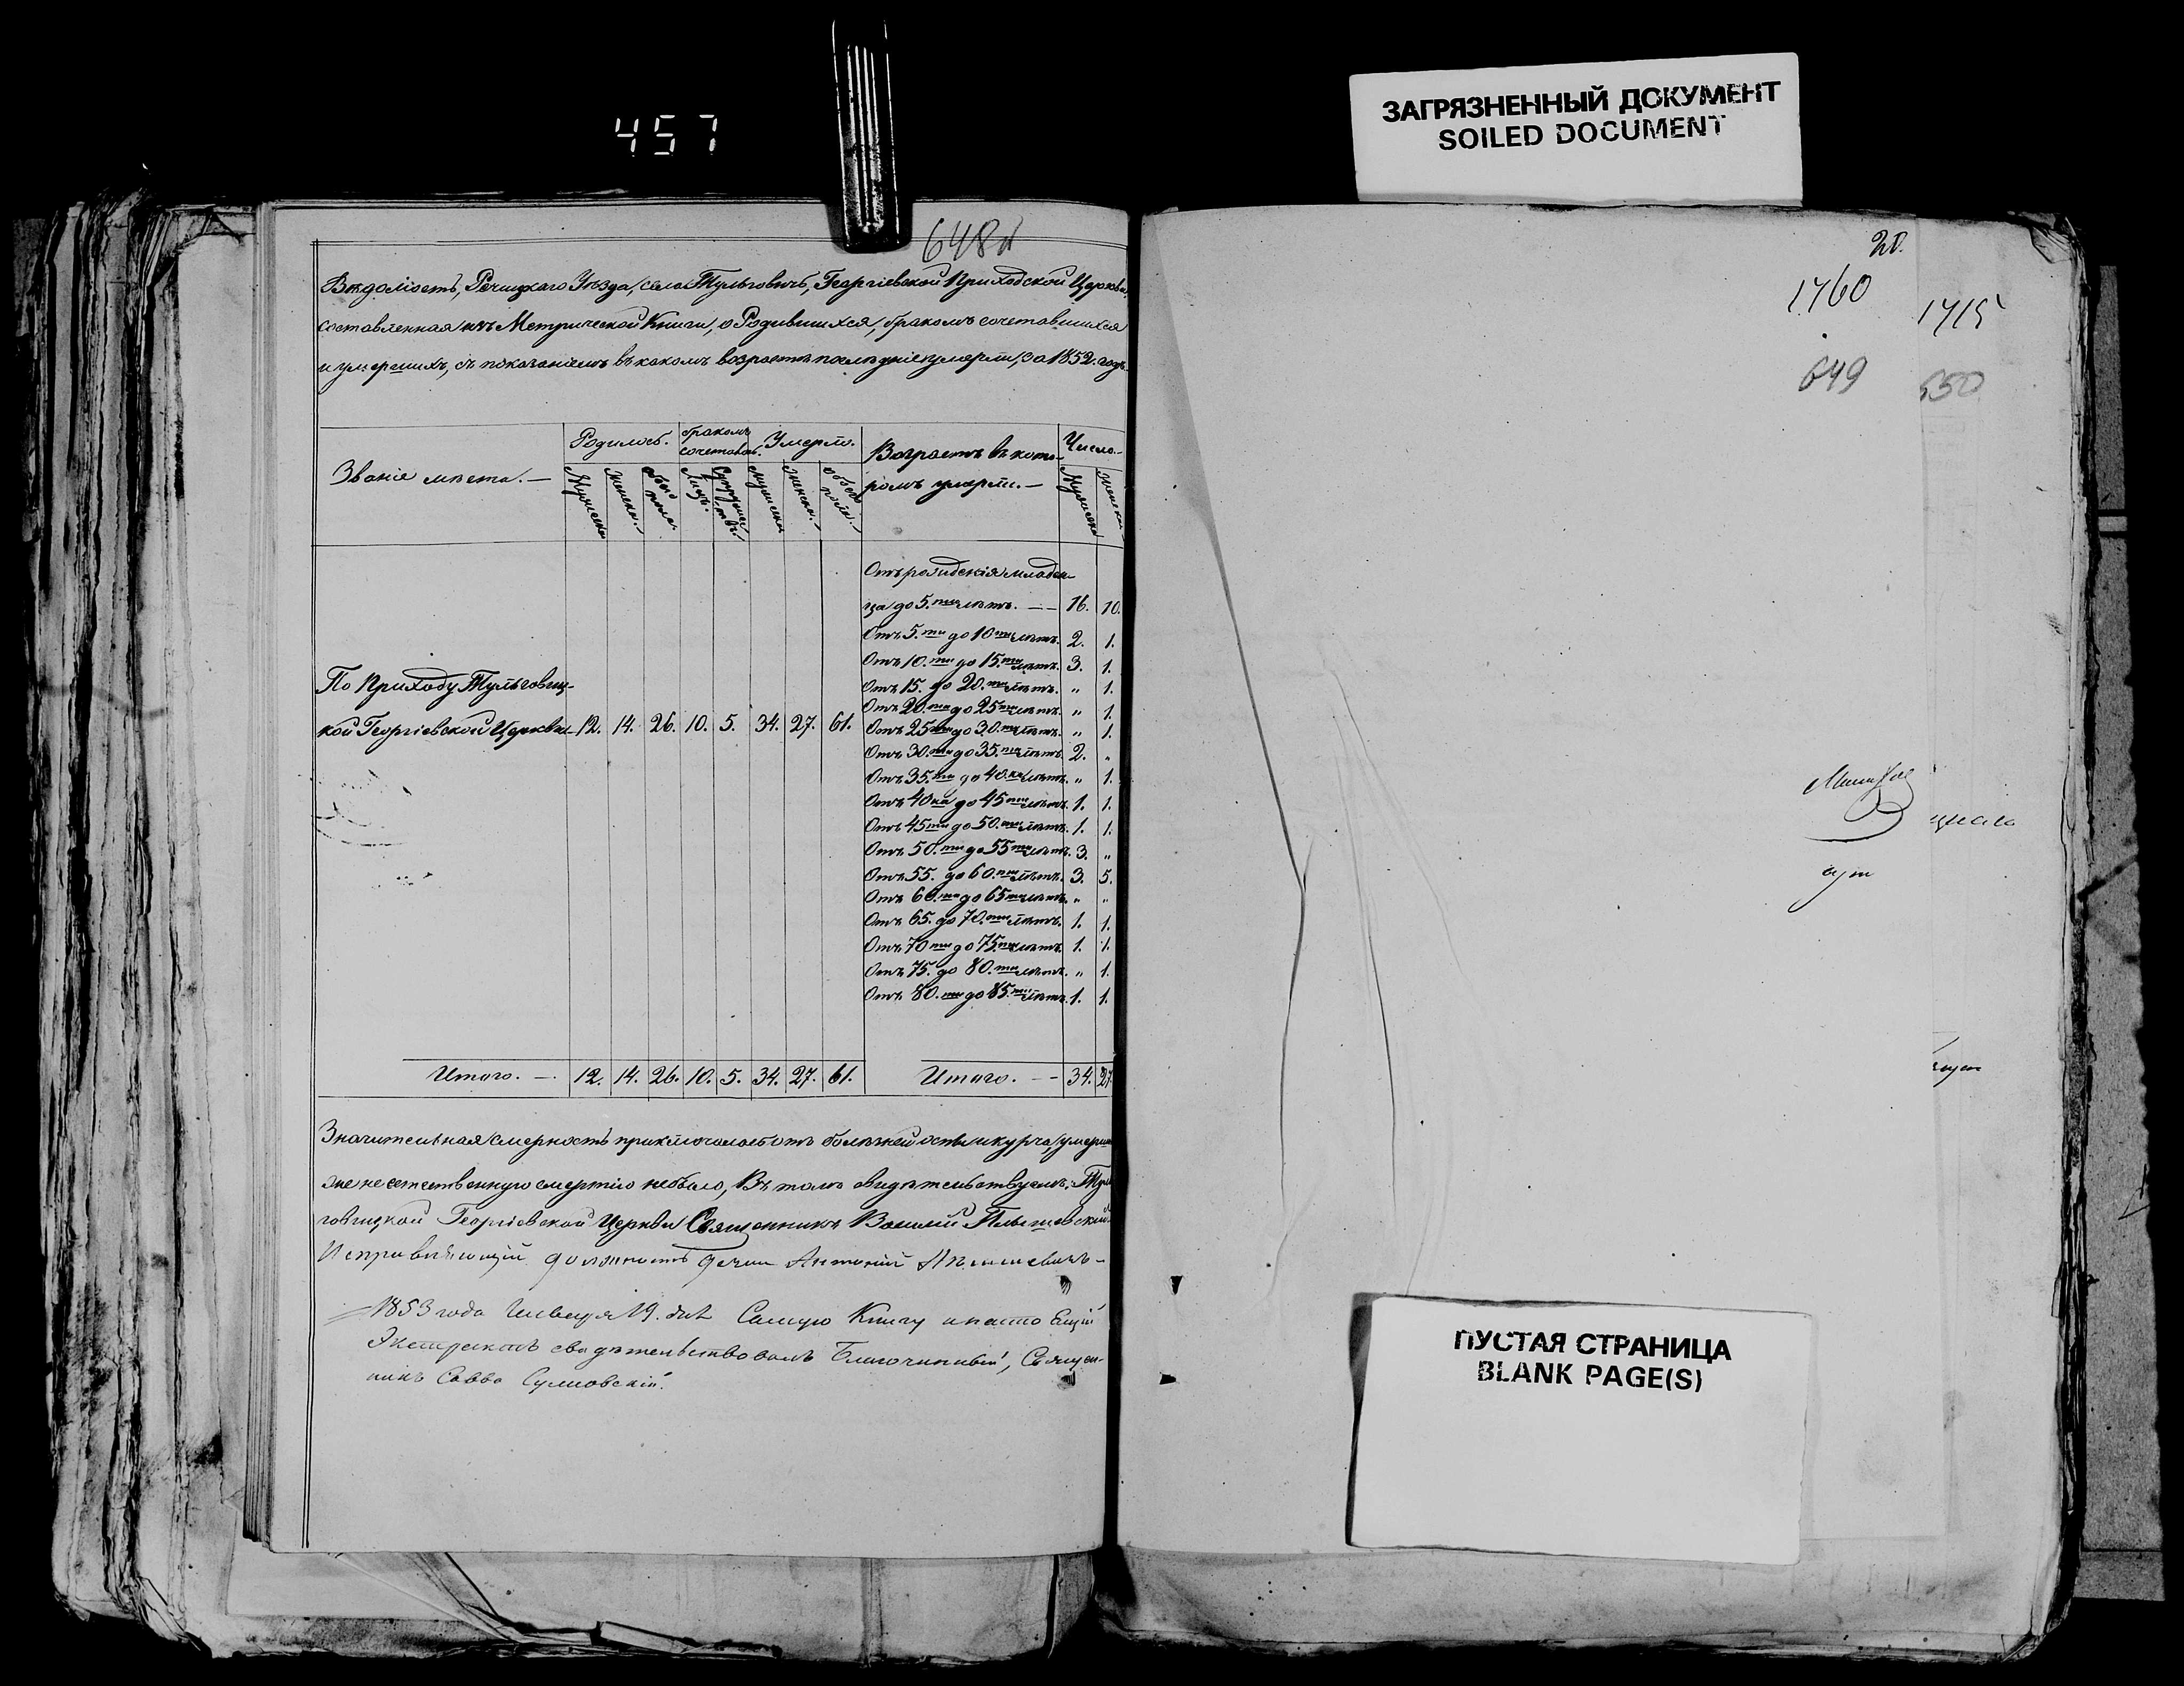 457
ЗАГРЯЗНЕННЫЙ ДОКУМЕНТ
SOILED DOCUMENT
648
Вѣдомость, Речицкаго Уѣзда, села Тульговичъ, Георгіевской Приходской Церкви,
составленная изъ Метрической Книги, о Родившихся, бракомъ сочетавшихся
и умершихъ, съ показаніемъ въ какомъ возрастѣ послѣдніе умерли, за 1852. годъ.
Званіе мѣста. —
Родилось.
бракомъ сочетавш.
Умерло.
Возрастъ въ кото-
ромъ умерли. —
Число.
Мужеска
Женска.
обоего пола.
Лицъ.
Супружествъ.
Мужеска
Женска.
обоего пола.
Мужеска
Женска
Отъ рожденія младен-
ца до 5.ти лѣтъ. — — 16. 10.
Отъ 5.ти до 10ти лѣтъ. 2. 1.
Отъ 10.ти до 15.ти лѣтъ. 3. 1.
Отъ 15. до 20.ти лѣтъ. „ 1.
Отъ 20.ти до 25ти лѣтъ. „ 1.
Отъ 25ти до 30.ти лѣтъ. „ 1.
Отъ 30.ти до 35.ти лѣтъ. 2. „
Отъ 35.ти до 40.ка лѣтъ. „ 1.
Отъ 40ка до 45ти лѣтъ. 1. 1.
Отъ 45ти до 50.ти лѣтъ. 1. 1.
Отъ 50.ти до 55ти лѣтъ. 3. „
Отъ 55. до 60.ти лѣтъ. 3. 5.
Отъ 60.ти до 65ти лѣтъ. „ „
Отъ 65. до 70.ти лѣтъ. 1. 1.
Отъ 70ти до 75ти лѣтъ. 1. 1.
Отъ 75. до 80.ти лѣтъ. „ 1.
Отъ 80.ти до 85.ти лѣтъ. 1. 1.
По Приходу Тульговиц-
кой Георгіевской Церкви 12. 14. 26. 10. 5. 34. 27. 61.
Итого. — 12. 14. 26. 10. 5. 34. 27. 61. Итого. — — 34. 27.
Значительная смерность приключалась отъ болѣзней
не естественную смертію небыло, Въ томъ свидѣтельствуемъ. Тул
говицкой Георгіевской Церкви Священникъ Василій
Исправляющій должность дечка Антоній
1853 года Генваря 19. дня Самую Книгу и настоящій
Экстрактъ свидѣтельствовалъ Благочинный, Священ-
никъ Савва Сулковскій.
20.
1760
1715
649
650
ПУСТАЯ СТРАНИЦА
BLANK PAGE(S)